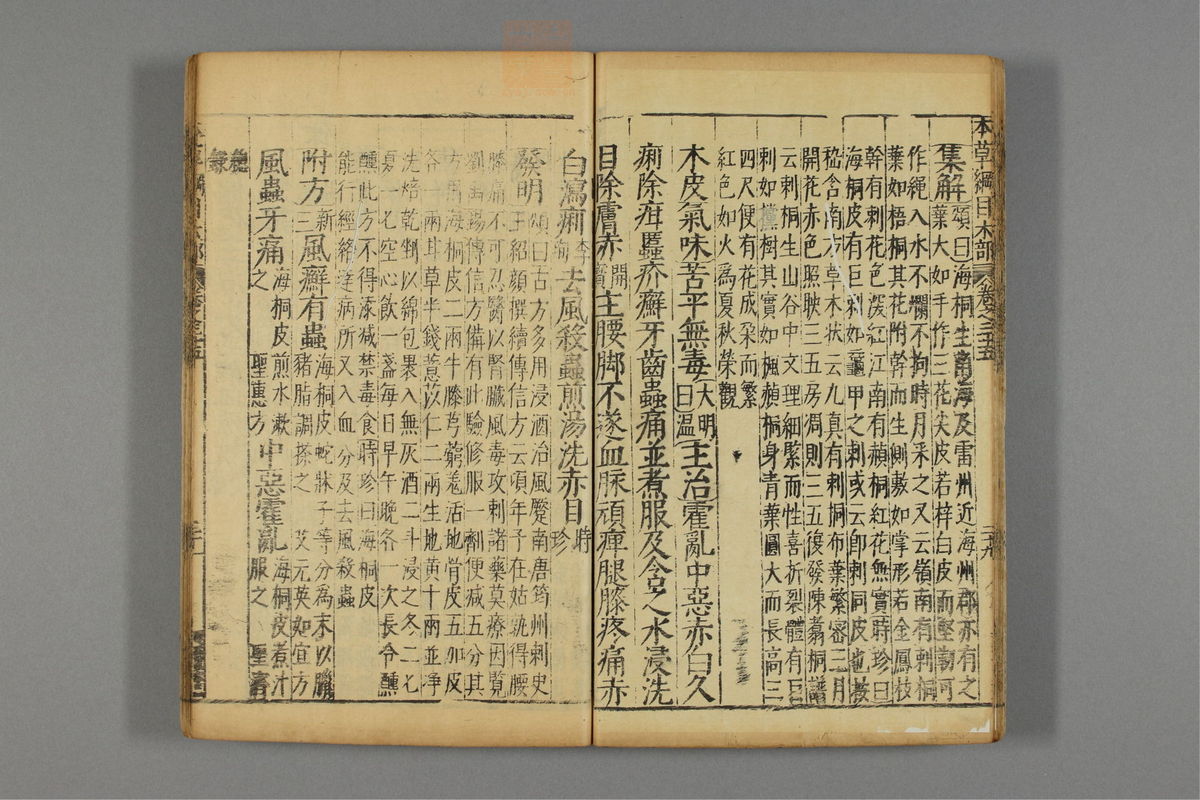 本草綱目木部 卷之三十五 二十九
集解頌曰海桐生南海及雷州近海州郡亦有之
葉大如手作三花尖皮若梓白皮而堅韌可
作繩入水不爛不拘時月采之又云嶺南有刺桐
葉如梧桐其花附幹而生側敷如掌形若金鳳枝
幹有刺花色深紅江南有赬桐紅花無實時珍曰
海桐皮有巨刺如黿甲之刺或云卽刺桐皮也按
嵇含南方草木狀云九真有刺桐布葉繁密三月
開花赤色照映三五房凋則三五復發陳翥桐譜
云刺桐生山谷中文理細緊而性喜折裂體有巨
刺如欓樹其實如楓赬桐身青葉圓大而長高三
四尺便有花成朶而繁
紅色如火爲夏秋榮觀
木皮氣味苦平無毒大明曰溫主治霍亂中惡赤白久
痢除疳䘌疥癬牙齒蟲痛並煮服及含之水浸洗
目除膚赤開寶主腰脚不遂血脉頑痺腿膝疼痛赤
白瀉痢李珣去風殺蟲煎湯洗赤目時珍
發明頌曰古方多用浸酒治風蹷南唐筠州刺史
王紹顔撰續傳信方云頃年予在姑孰得腰
膝痛不可忍醫以腎臟風毒攻刺諸藥莫療因覽
劉禹錫傳信方備有此驗修服一劑便減五分其
方用海桐皮二兩牛膝芎藭羌活地骨皮五加皮
各一兩甘草半錢薏苡仁二兩生地黄十兩並淨
洗焙乾剉以綿包裹入無灰酒二斗浸之冬二七
夏一七空心飲一盞每日早午晚各一次長令醺
醺此方不得添減禁毒食時珍曰海桐皮
能行經絡達病所又入血分及去風殺蟲
附方新三風癬有蟲海桐皮蛇牀子等分爲末以臘
豬脂調搽之 艾元英如宜方
風蟲牙痛海桐皮煎水漱之 聖惠方中惡霍亂海桐皮煮汁服之 聖濟
總錄